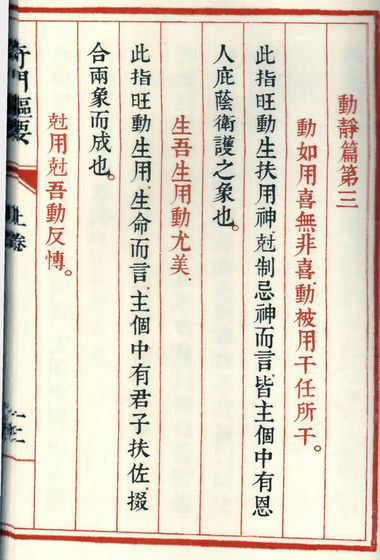 動靜篇第三
動如用喜無非喜.動被用干任所干。
此指旺動生扶用神.尅制忌神而言.皆主個中有恩
人庇蔭衛護之象也。
生吾生用動尤美.
此指旺動生用.生命而言.主個中有君子扶佐.掇
合兩象而成也。
尅用尅吾動反慱。
奇門樞要
上卷